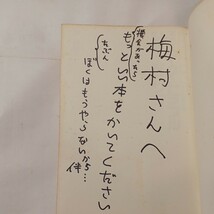 梅村さんへ
機会があったら
もっといい本をかいてください
(たぶん
ぼくはもうやらないから…
伴